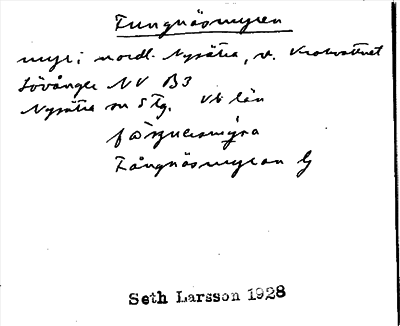 Fungnäsmyren
myr i nordl. Nysätra, v. Krokvattnet
Lövånger NV B3
Nysätra sn 5 Tg. Vb län
Fångnäsmyran G
Seth Larsson 1928